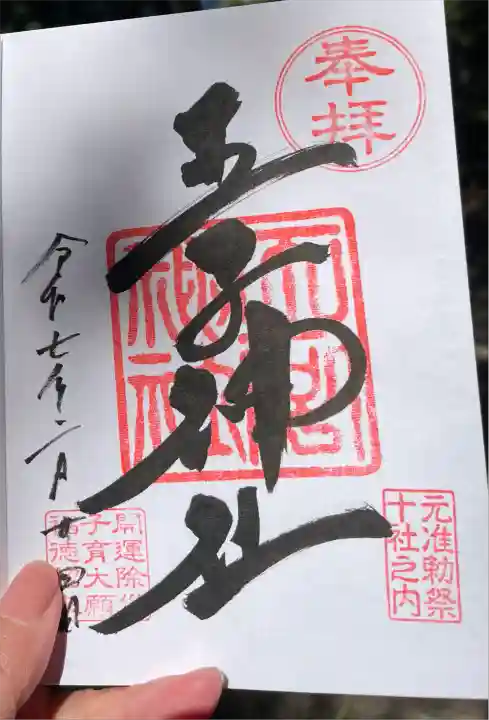 奉拝
王子神社
元准勅祭
十社之内
開運除災
子育大願
福徳
令和七年二月廿四日